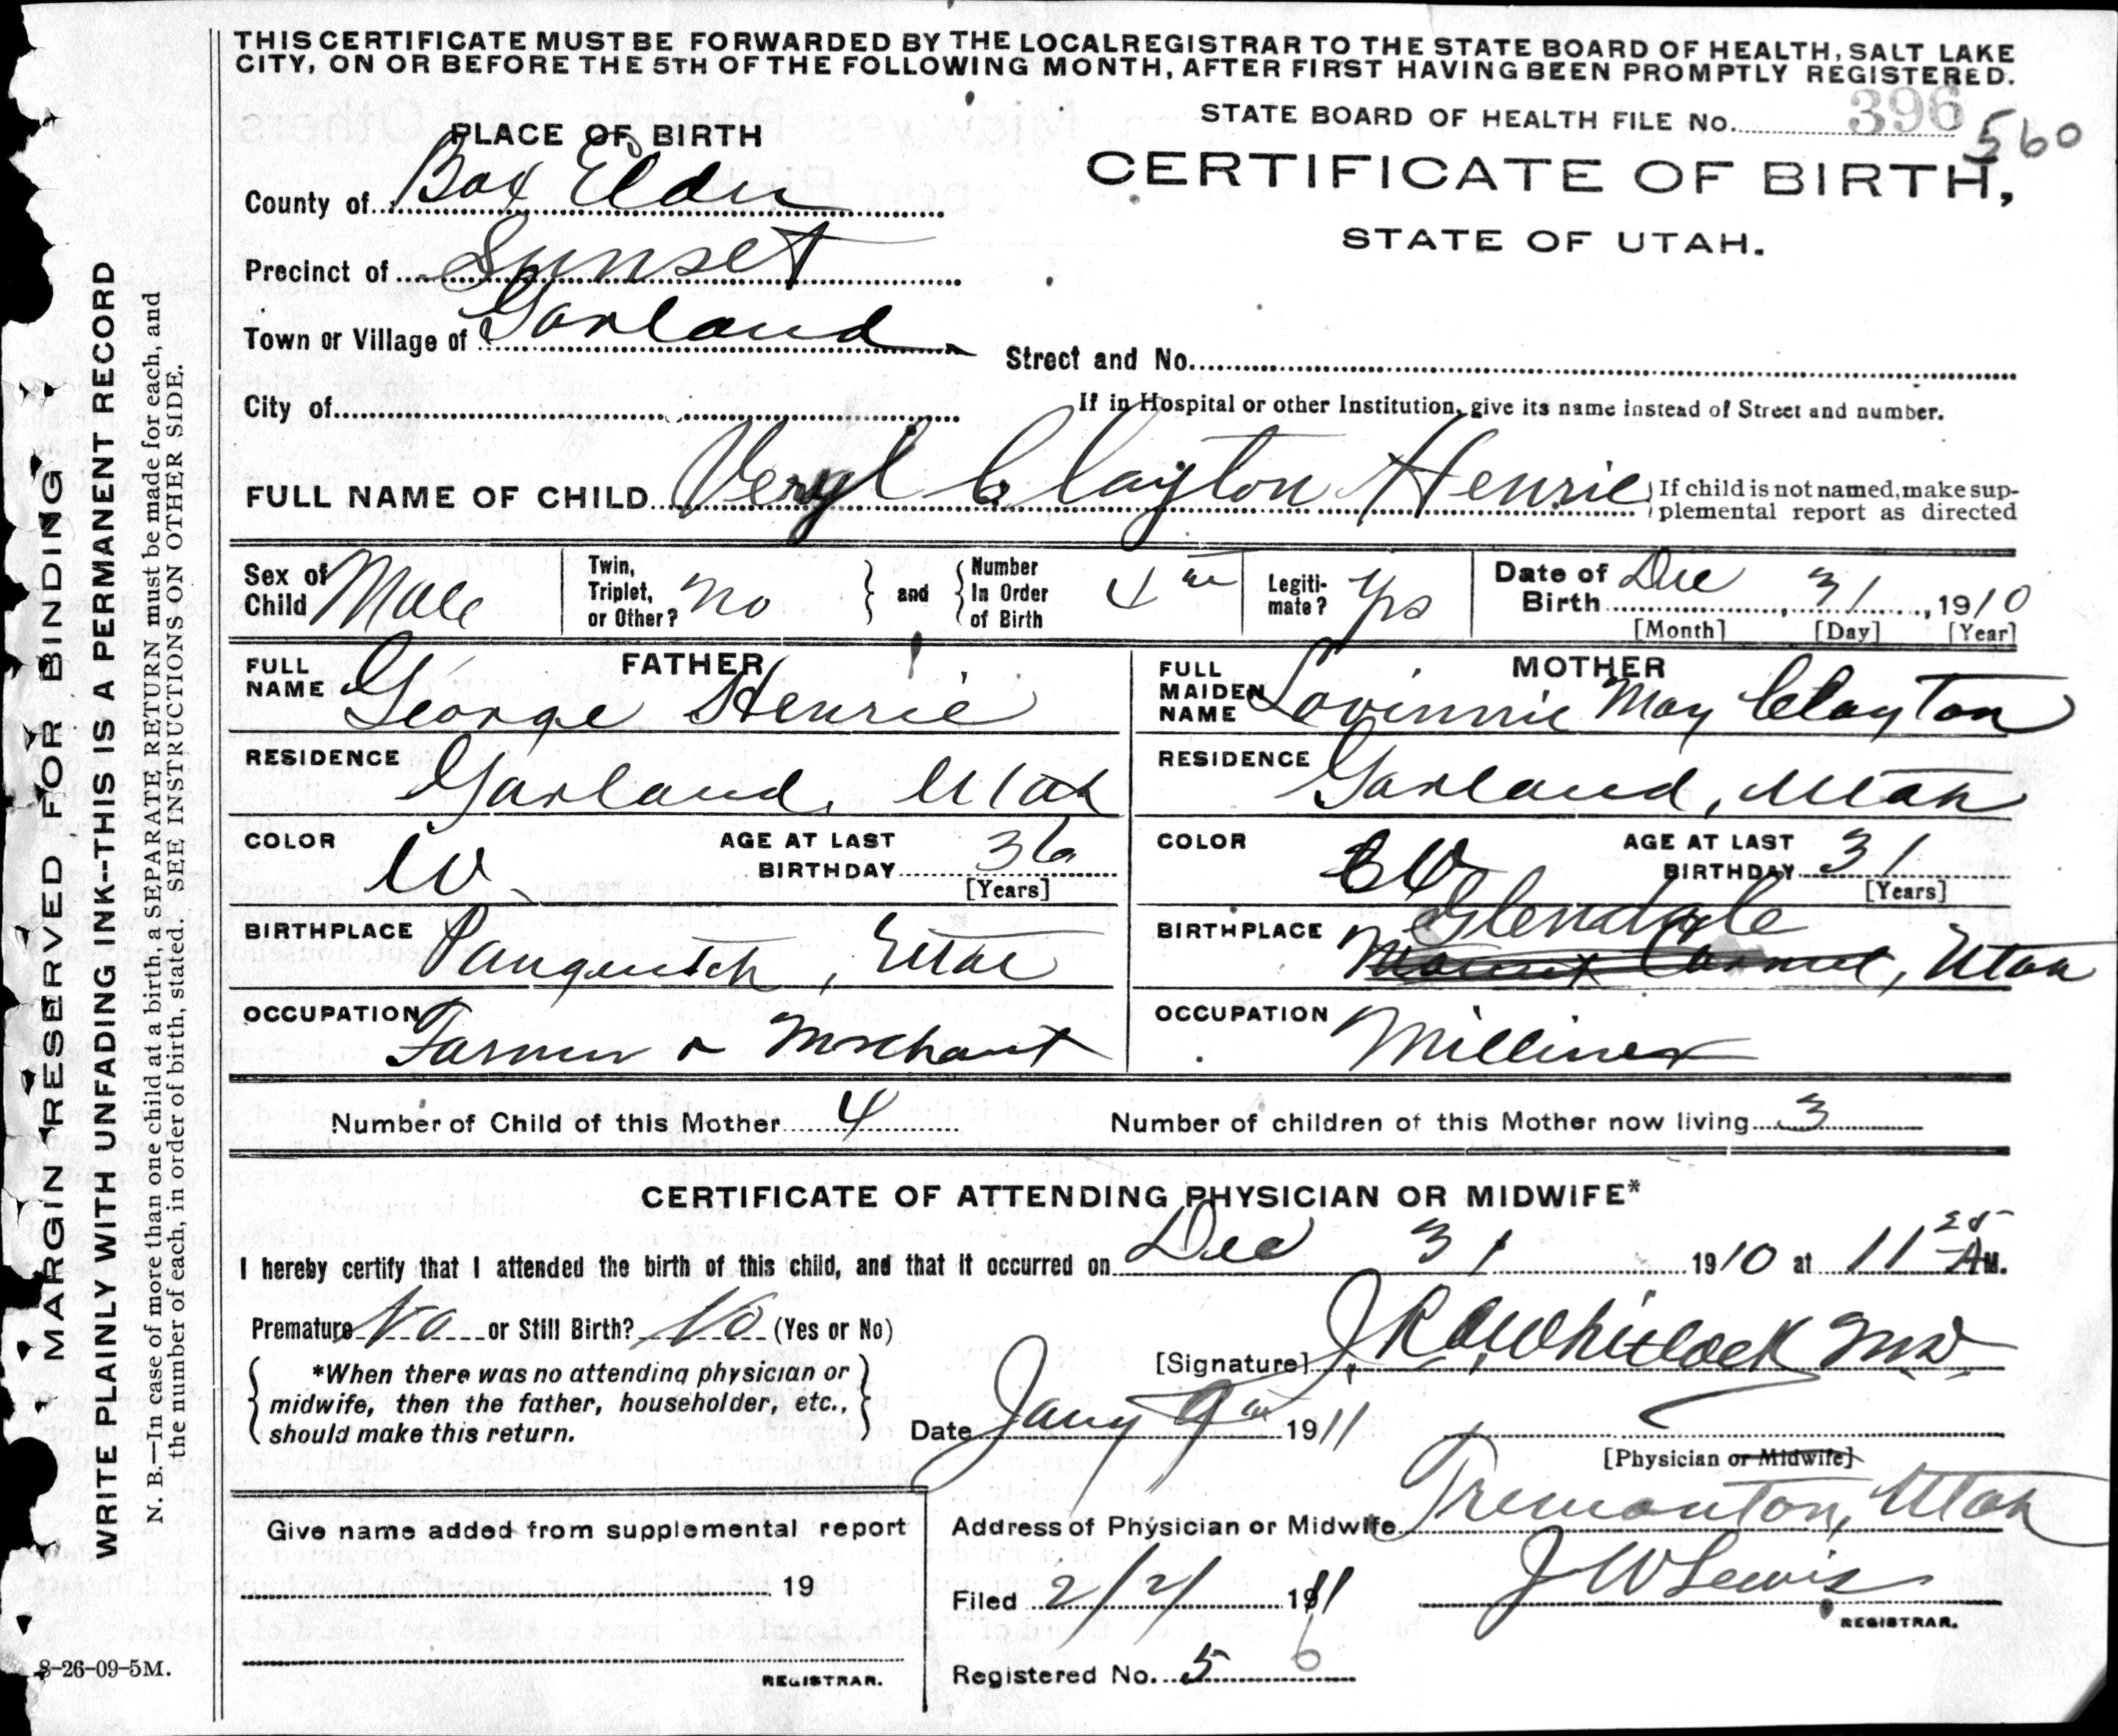 THIS CERTIFICATE MUST BE FORWARDED BY THE LOCAL REGISTRAR TO THE STATE BOARD OF HEALTH, SALT LAKE
CITY, ON OR BEFORE THE 5TH OF THE FOLLOWING MONTH, AFTER FIRST HAVING BEEN PROMPTLY REGISTERED.
STATE BOARD OF HEALTH FILE No. 396 560
PLACE OF BIRTH
CERTIFICATE OF BIRTH,
STATE OF UTAH.
County of Box Elder
Precinct of Sunset
Town or Village of Garland
Street and No.
City of
If in Hospital or other Institution, give its name instead of Street and number.
FULL NAME OF CHILD Veryl Clayton Henrie
If child is not named, make sup-
plemental report as directed
Sex of Child Male
Twin, Triplet, or Other? No
and
Number In Order of Birth 4th
Legiti-mate? Yes
Date of Birth Dec 31, 1910
[Month] [Day] [Year]
FATHER
FULL NAME George Henrie
RESIDENCE Garland, Utah
COLOR W
AGE AT LAST BIRTHDAY 36
[Years]
BIRTHPLACE Panguitch, Utah
OCCUPATION Farmer & Merchant
MOTHER
FULL MAIDEN NAME Lovinnie May Clayton
RESIDENCE Garland, Utah
COLOR W
AGE AT LAST BIRTHDAY 31
[Years]
BIRTHPLACE Glendale
Mount Carmel, Utah
OCCUPATION Milliner
Number of Child of this Mother 4
Number of children of this Mother now living 3
CERTIFICATE OF ATTENDING PHYSICIAN OR MIDWIFE*
I hereby certify that I attended the birth of this child, and that it occurred on Dec 31 1910 at 11 25 AM.
Premature No or Still Birth? No (Yes or No)
*When there was no attending physician or
midwife, then the father, householder, etc.,
should make this return.
[Signature] Whitlock MD
Date Jany 9th 1911
[Physician or Midwife]
Address of Physician or Midwife Tremonton, Utah
Give name added from supplemental report
19
REGISTRAR.
Filed 2/2/ 1911
J W Lewis
REGISTRAR.
Registered No. 5 6
MARGIN RESERVED FOR BINDING
WRITE PLAINLY WITH UNFADING INK--THIS IS A PERMANENT RECORD
N. B.—In case of more than one child at a birth, a SEPARATE RETURN must be made for each, and
the number of each, in order of birth, stated. SEE INSTRUCTIONS ON OTHER SIDE.
8-26-09-5M.